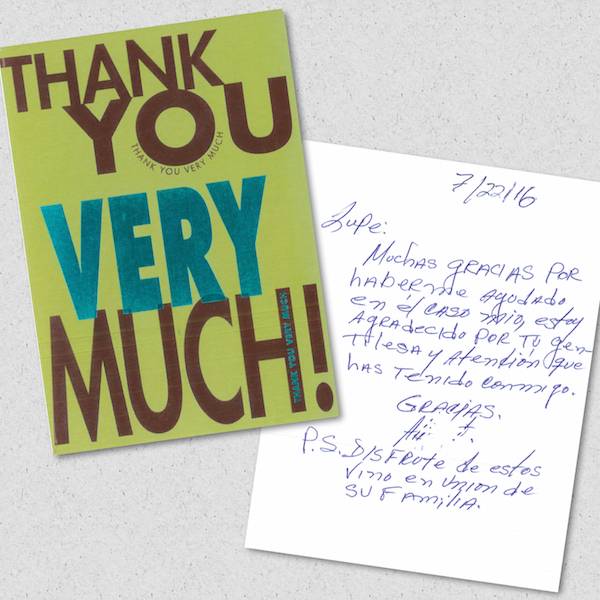 THANK
YOU
THANK YOU VERY MUCH
VERY
MUCH!
THANK YOU VERY MUCH
7/22/16
Lupe:
Muchas GRACIAS POR
haberme ayudado
en el CASO mio, estoy
AGRADECIDO POR TU gen
tilesa y Atención que
has Tenido conmigo.
GRACIAS.
P.S. DISFRUTE de estos
vino en union de
SU FAMILIA.